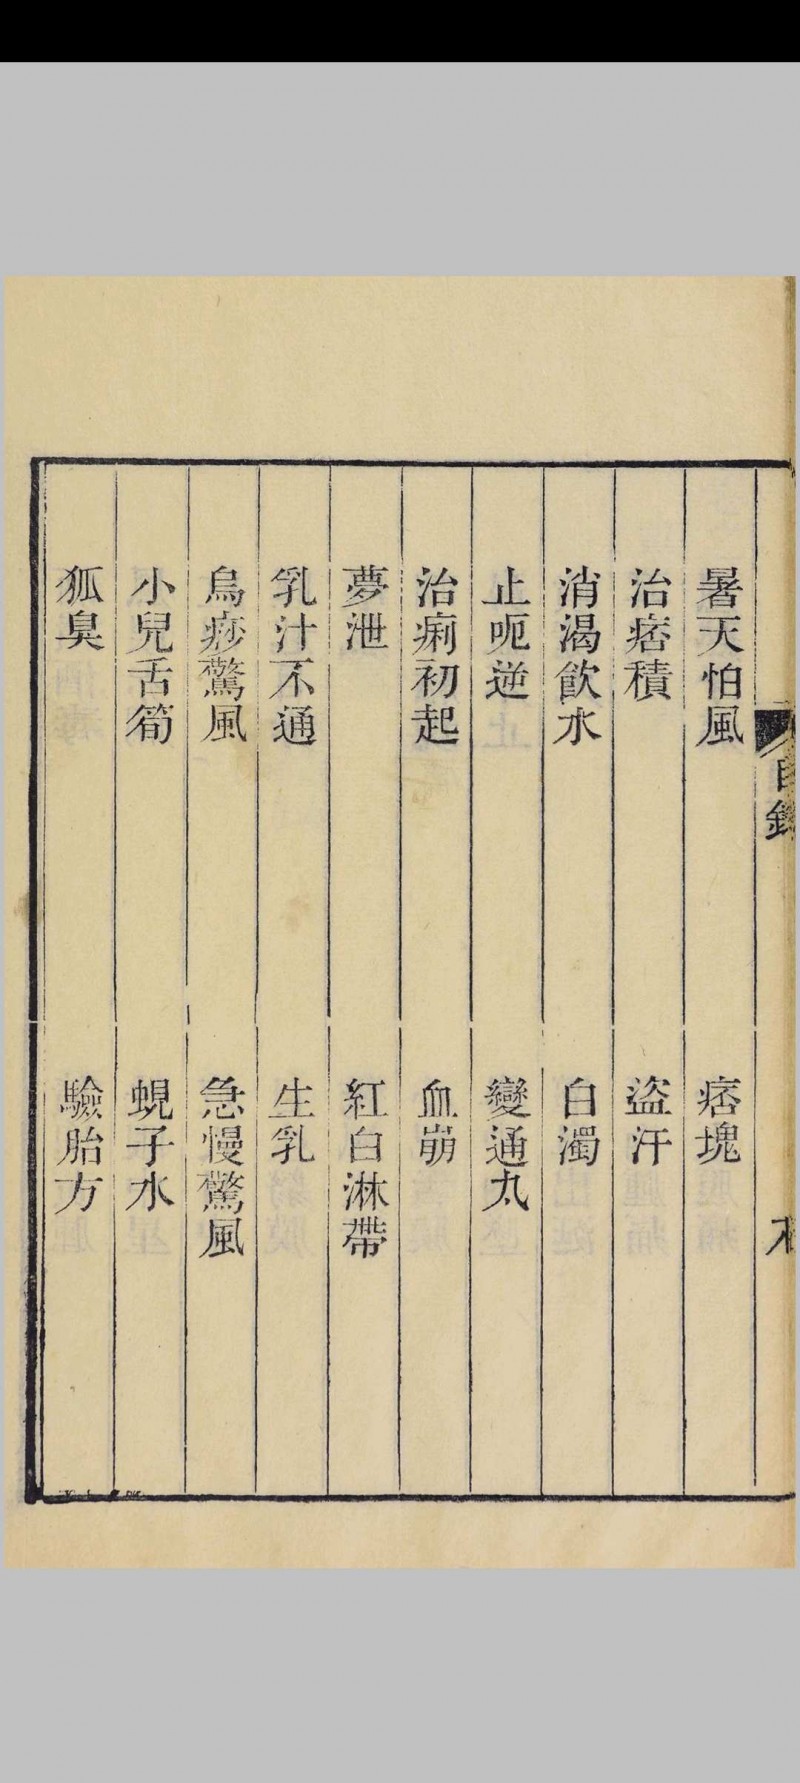 目錄
暑天怕風　痞塊
治痞積　盜汗
消渴飲水　白濁
止呃逆　變通丸
治痢初起　血崩
夢泄　紅白淋帶
乳汁不通　生乳
烏痧驚風　急慢驚風
小兒舌筍　蜆子水
狐臭　驗胎方